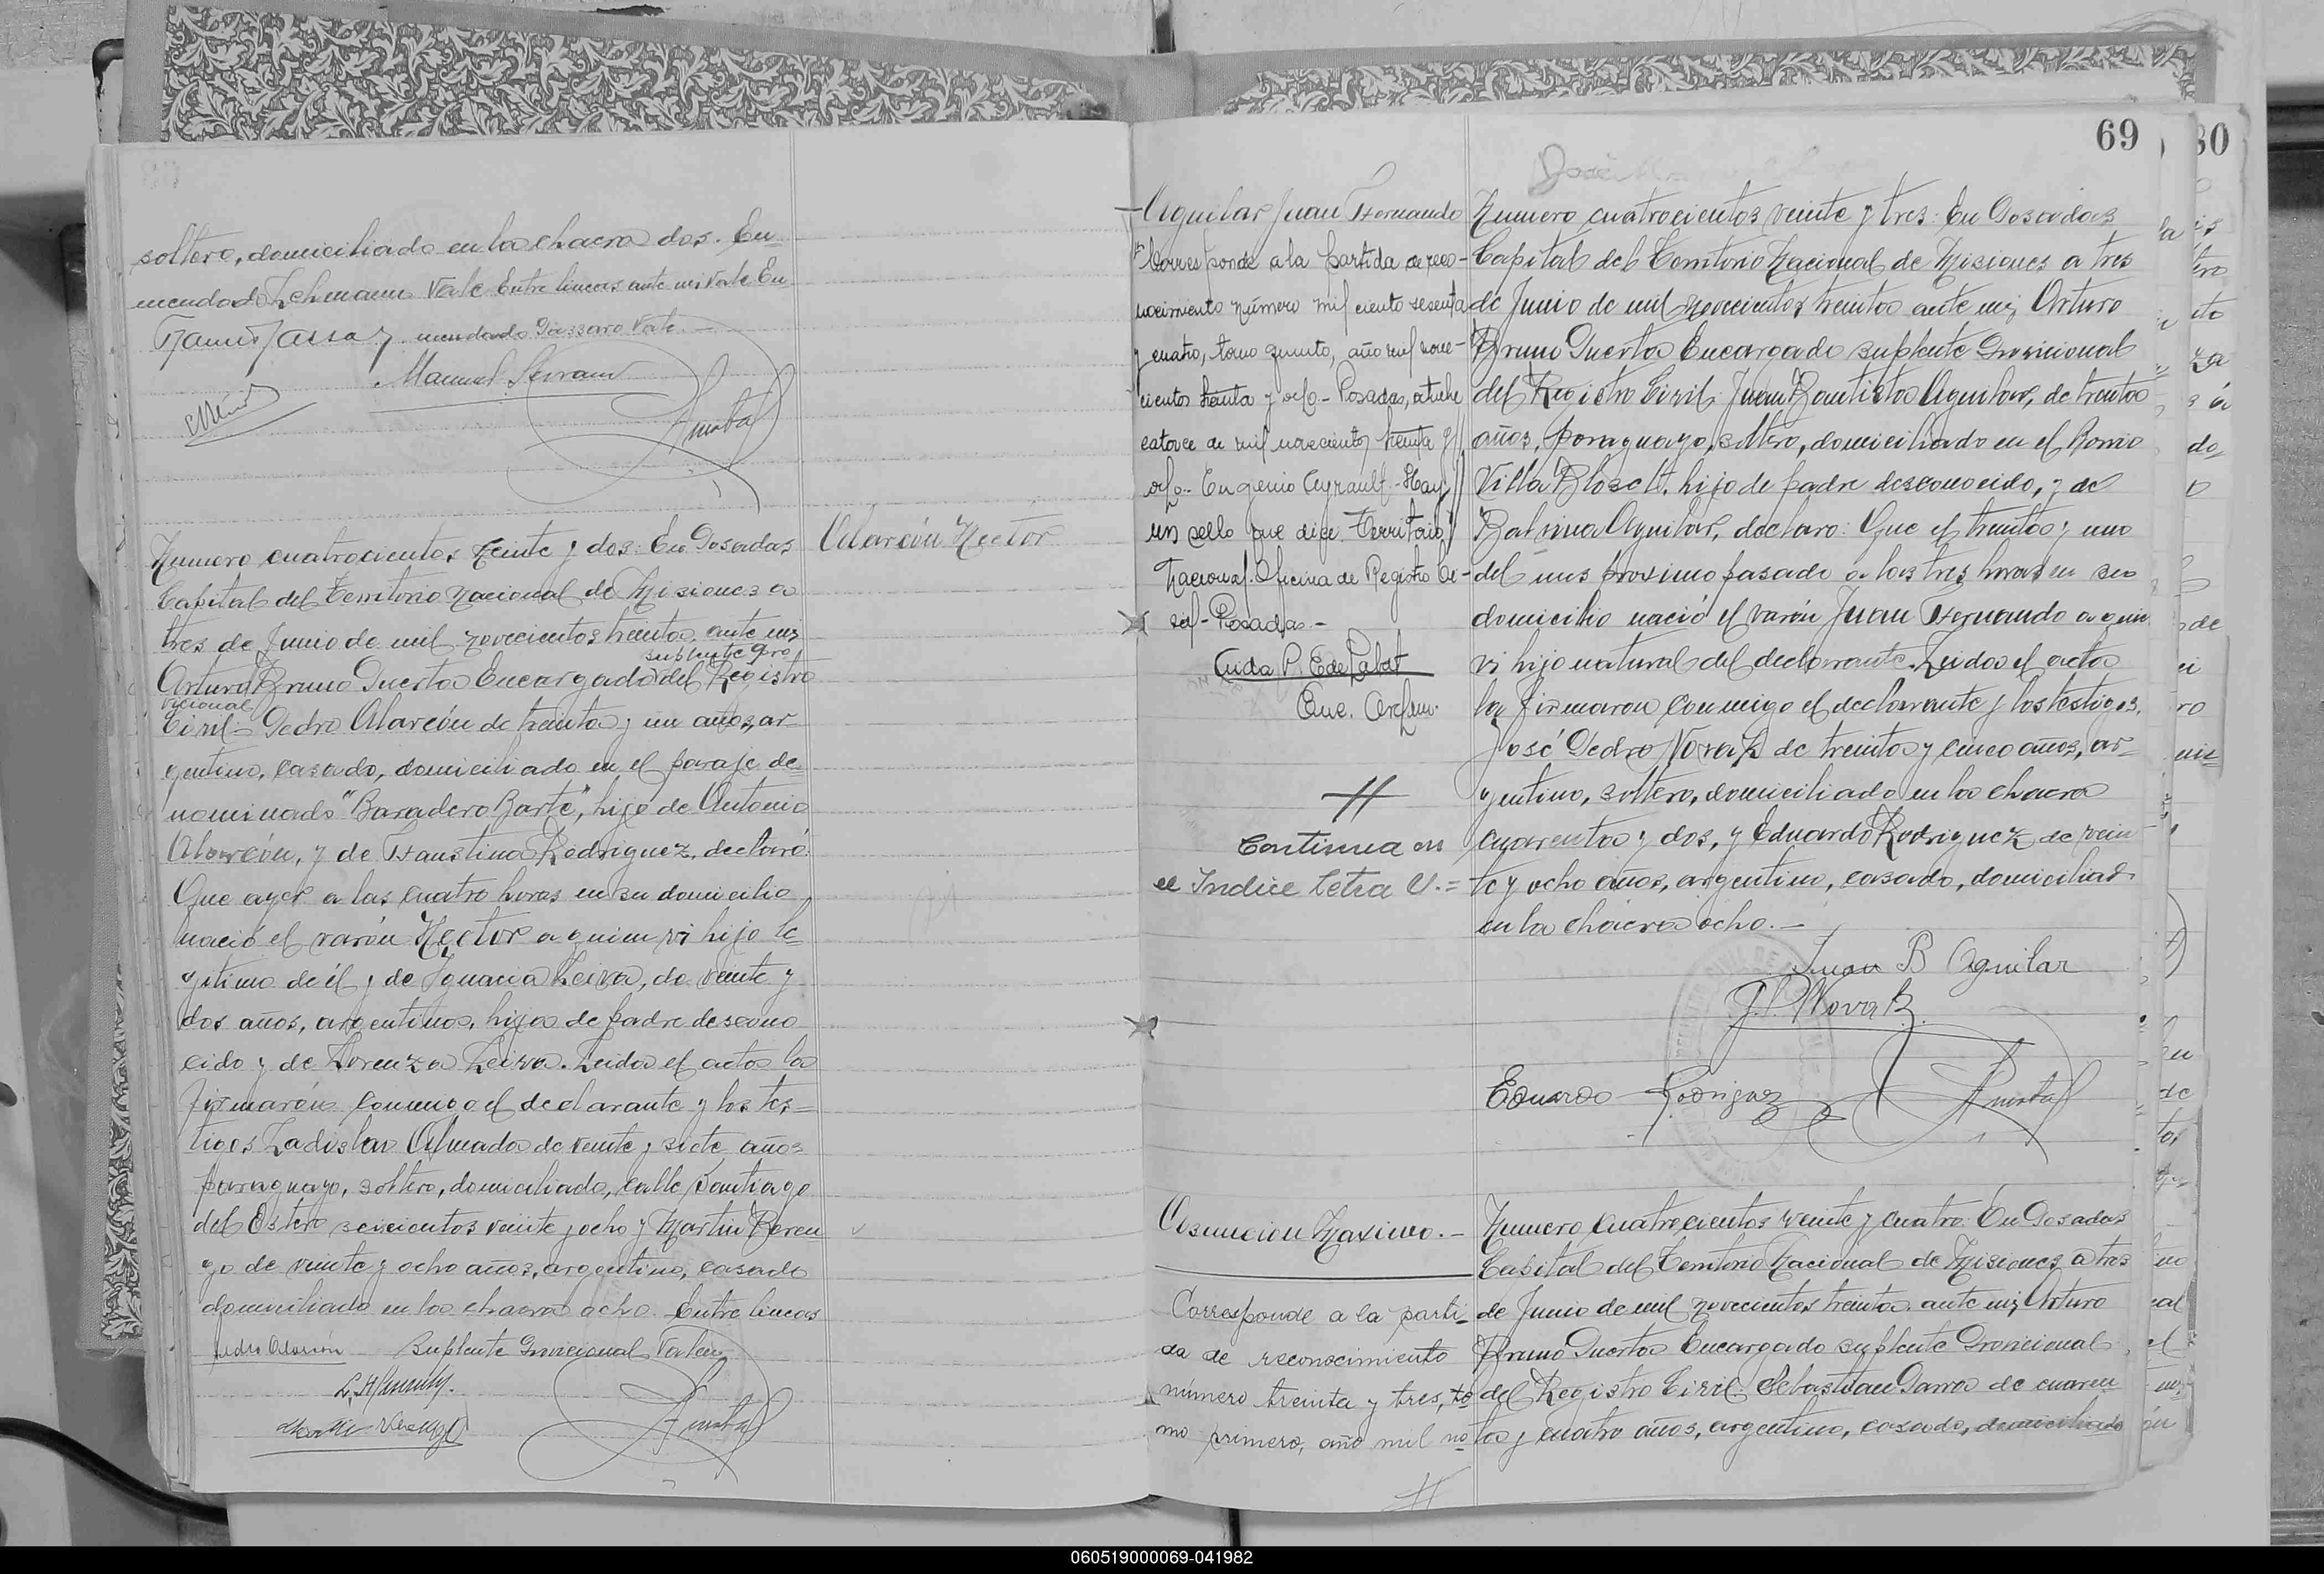 soltero, domiciliado en la chacra dos. En
mendado Lehmann Vale Entre lineas ante mi Vale En
mendado Vale.—
Manuel Serrano
Numero cuatrocientos veinte y dos: En Posadas
Capital del Territorio Nacional de Misiones a
tres de Junio de mil novecientos treinta, ante mi
suplente Pro
Arturo Bruno Puerta Encargado del Registro
vicional
Civil- Pedro Alarcón de treinta y un años, ar-
gentino, casado, domiciliado en el paraje de-
nominado "Baradero Zarte", hijo de Antonio
Alarcón, y de Faustina Rodriguez, declaró:
Que ayer a las cuatro horas en su domicilio
nació el varón Hector a quien vi hijo le-
gitimo de él y de Ignacia Leiva, de veinte y
dos años, argentinos, hija de padre descono
cido y de Lorenza Leiva. Leida el acta la
firmarón conmigo el declarante y los tes=
tigos Ladislao Almada de veinte y siete años
paraguayo, soltero, domiciliado, calle Santiago
del Estero seicientos veinte y ocho y Martin Beren
go de veinte y ocho años, argentino, casado
domiciliado en la chacra ocho. Entre lineas
Pedro Alarcón suplente Provicional Valen
Alarcón Hector
69
80
Aguilar Juan Fernando
Corresponde a la partida de reco-
nocimiento número mil ciento sesenta
y cuatro, tomo quinto, año mil nove-
cientos treinta y ocho.- Posadas, octubre
catorce de mil novecientos treinta y
ocho.- Eugenio Ayrault.- Hay
un sello que dice: Territorio
Nacional. Oficina de Registro Ci-
vil- Posadas.-
Enc.
Continua en
el Indice letra A.=
Numero cuatrocientos veinte y tres: En Posadas
Capital del Territorio Nacional de Misiones a tres
de Junio de mil novecientos treinta ante mi, Arturo
Bruno Puerta Encargado suplente Provicional
del Registro Civil. Juan Bautista Aguilar, de treinta
años, paraguayo, soltero, domiciliado en el Barrio
Villa Blosett, hijo de padre desconocido, y de
Balvina Aguilar, declaro: Que el treinta y uno
del mes proximo pasado a las tres horas en su
domicilio nació el varón Juan Fernando a quien
vi hijo natural del declarante. Leida el acta
la firmaron conmigo el declarante y los testigos.
José Pedro Novak de treinta y cinco años, ar-
gentino, soltero, domiciliado en la chacra
cuarenta y dos, y Eduardo Rodriguez de vein
te y ocho años, argentino, casado, domiciliado
en la chacra ocho.—
Juan B Aguilar
J. P. Novak
Eduardo Rodriguez
Asuncion Maximo.-
Corresponde a la parti-
da de reconocimiento
número treinta y tres, to
mo primero, año mil no
Numero cuatrocientos veinte y cuatro: En Posadas
Capital del Territorio Nacional de Misiones a tres
de Junio de mil novecientos treinta, ante mi, Arturo
Bruno Puerta Encargado suplente Provicional
del Registro Civil. Sebastian Parra de cuaren
ta y cuatro años, argentino, casado, domiciliado
060519000069-041982